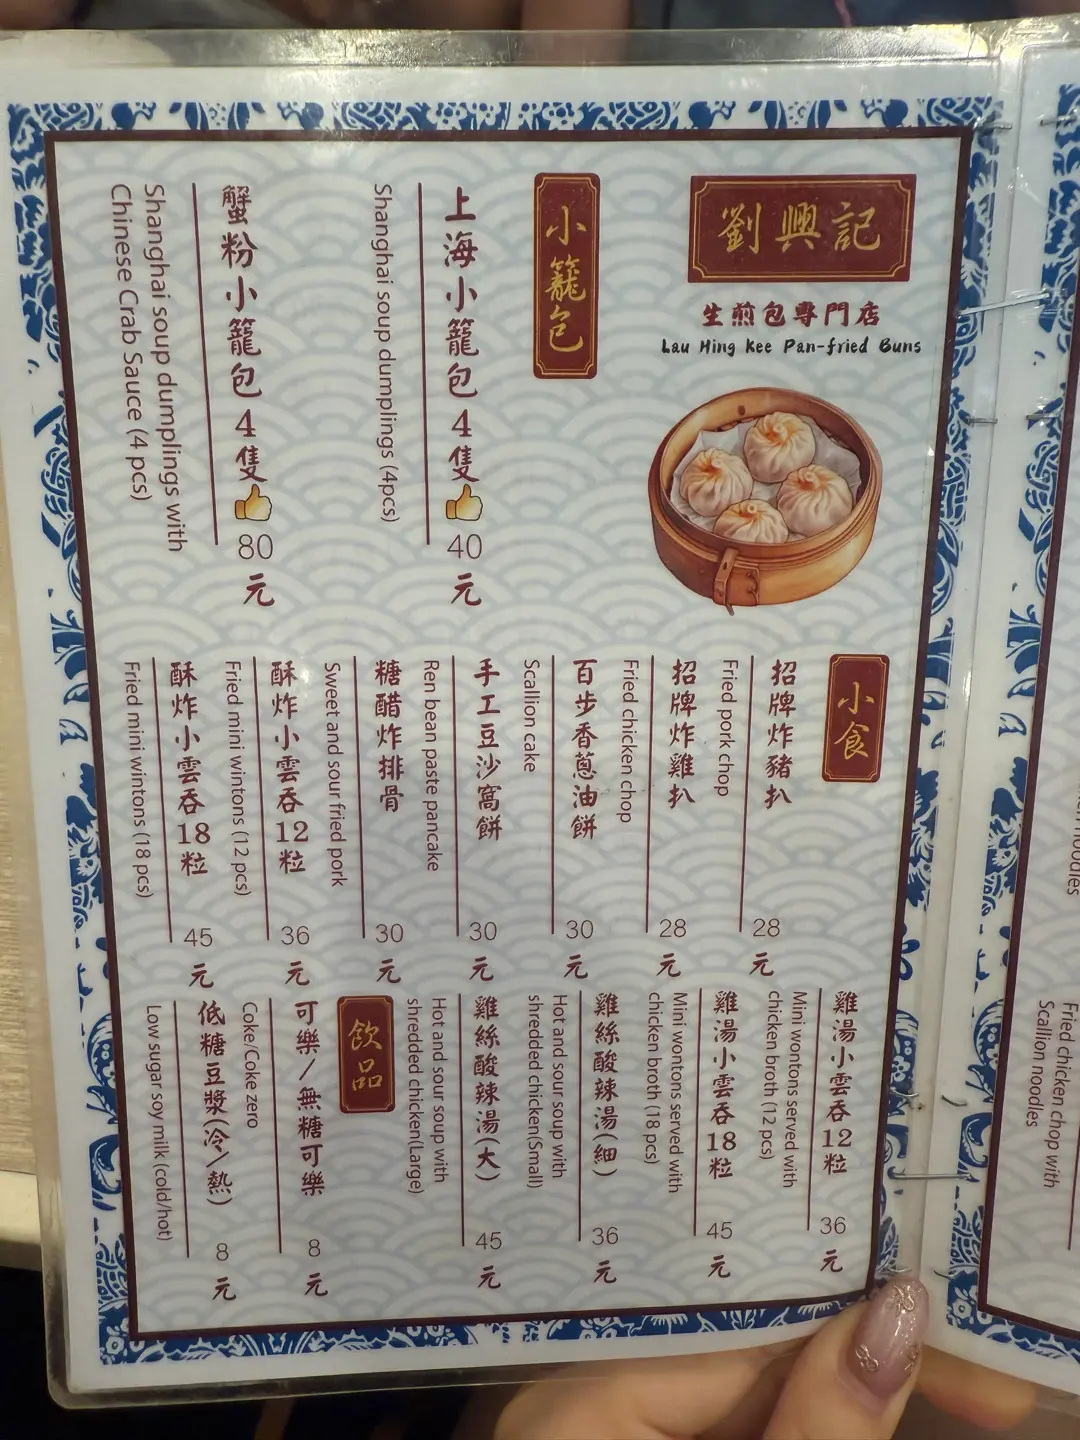 劉興記
生煎包專門店
Lau Hing Kee Pan-fried Buns
小籠包
上海小籠包4隻👍 40元
Shanghai soup dumplings (4pcs)
蟹粉小籠包4隻👍 80元
Shanghai soup dumplings with
Chinese Crab Sauce (4 pcs)
小食
招牌炸豬扒 28元
Fried pork chop
招牌炸雞扒 28元
Fried chicken chop
百步香蔥油餅 30元
Scallion cake
手工豆沙窩餅 30元
Ren bean paste pancake
糖醋炸排骨 30元
Sweet and sour fried pork
酥炸小雲吞12粒 36元
Fried mini wintons (12 pcs)
酥炸小雲吞18粒 45元
Fried mini wintons (18 pcs)
雞湯小雲吞12粒 36元
Mini wontons served with
chicken broth (12 pcs)
雞湯小雲吞18粒 45元
Mini wontons served with
chicken broth (18 pcs)
雞絲酸辣湯(細) 36元
Hot and sour soup with
shredded chicken(Small)
雞絲酸辣湯(大) 45元
Hot and sour soup with
shredded chicken(Large)
飲品
可樂/無糖可樂 8元
Coke/Coke zero
低糖豆漿(冷/熱) 8元
Low sugar soy milk (cold/hot)
noodles
Fried chicken chop with
Scallion noodles